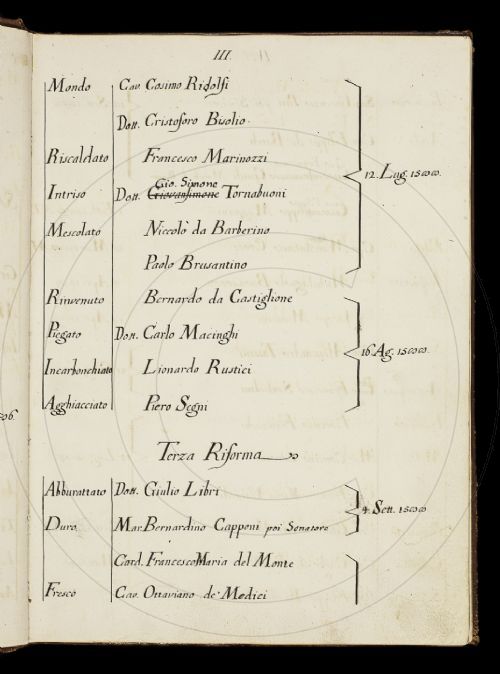 III.
Mondo Cav. Cosimo Ridolfi
Dott. Cristoforo Bisolio
Riscaldato Francesco Marinozzi
12. Lug. 1588.
Gio. Simone
Intriso Dott. Giovansimone Tornabuoni
Mescolato Niccolò da Barberino
Paolo Brusantino
Rinvenuto Bernardo da Castiglione
Piegato Dott. Carlo Macinghi
16. Ag. 1588.
Incarbonchiato Lionardo Rustici
Agghiacciato Piero Segni
Terza Riforma
Abburattato Dott. Giulio Libri
4. Sett. 1588
Duro Mar. Bernardino Capponi poi Senatore
Card. Francesco Maria del Monte
Fresco Cav. Ottaviano de' Medici